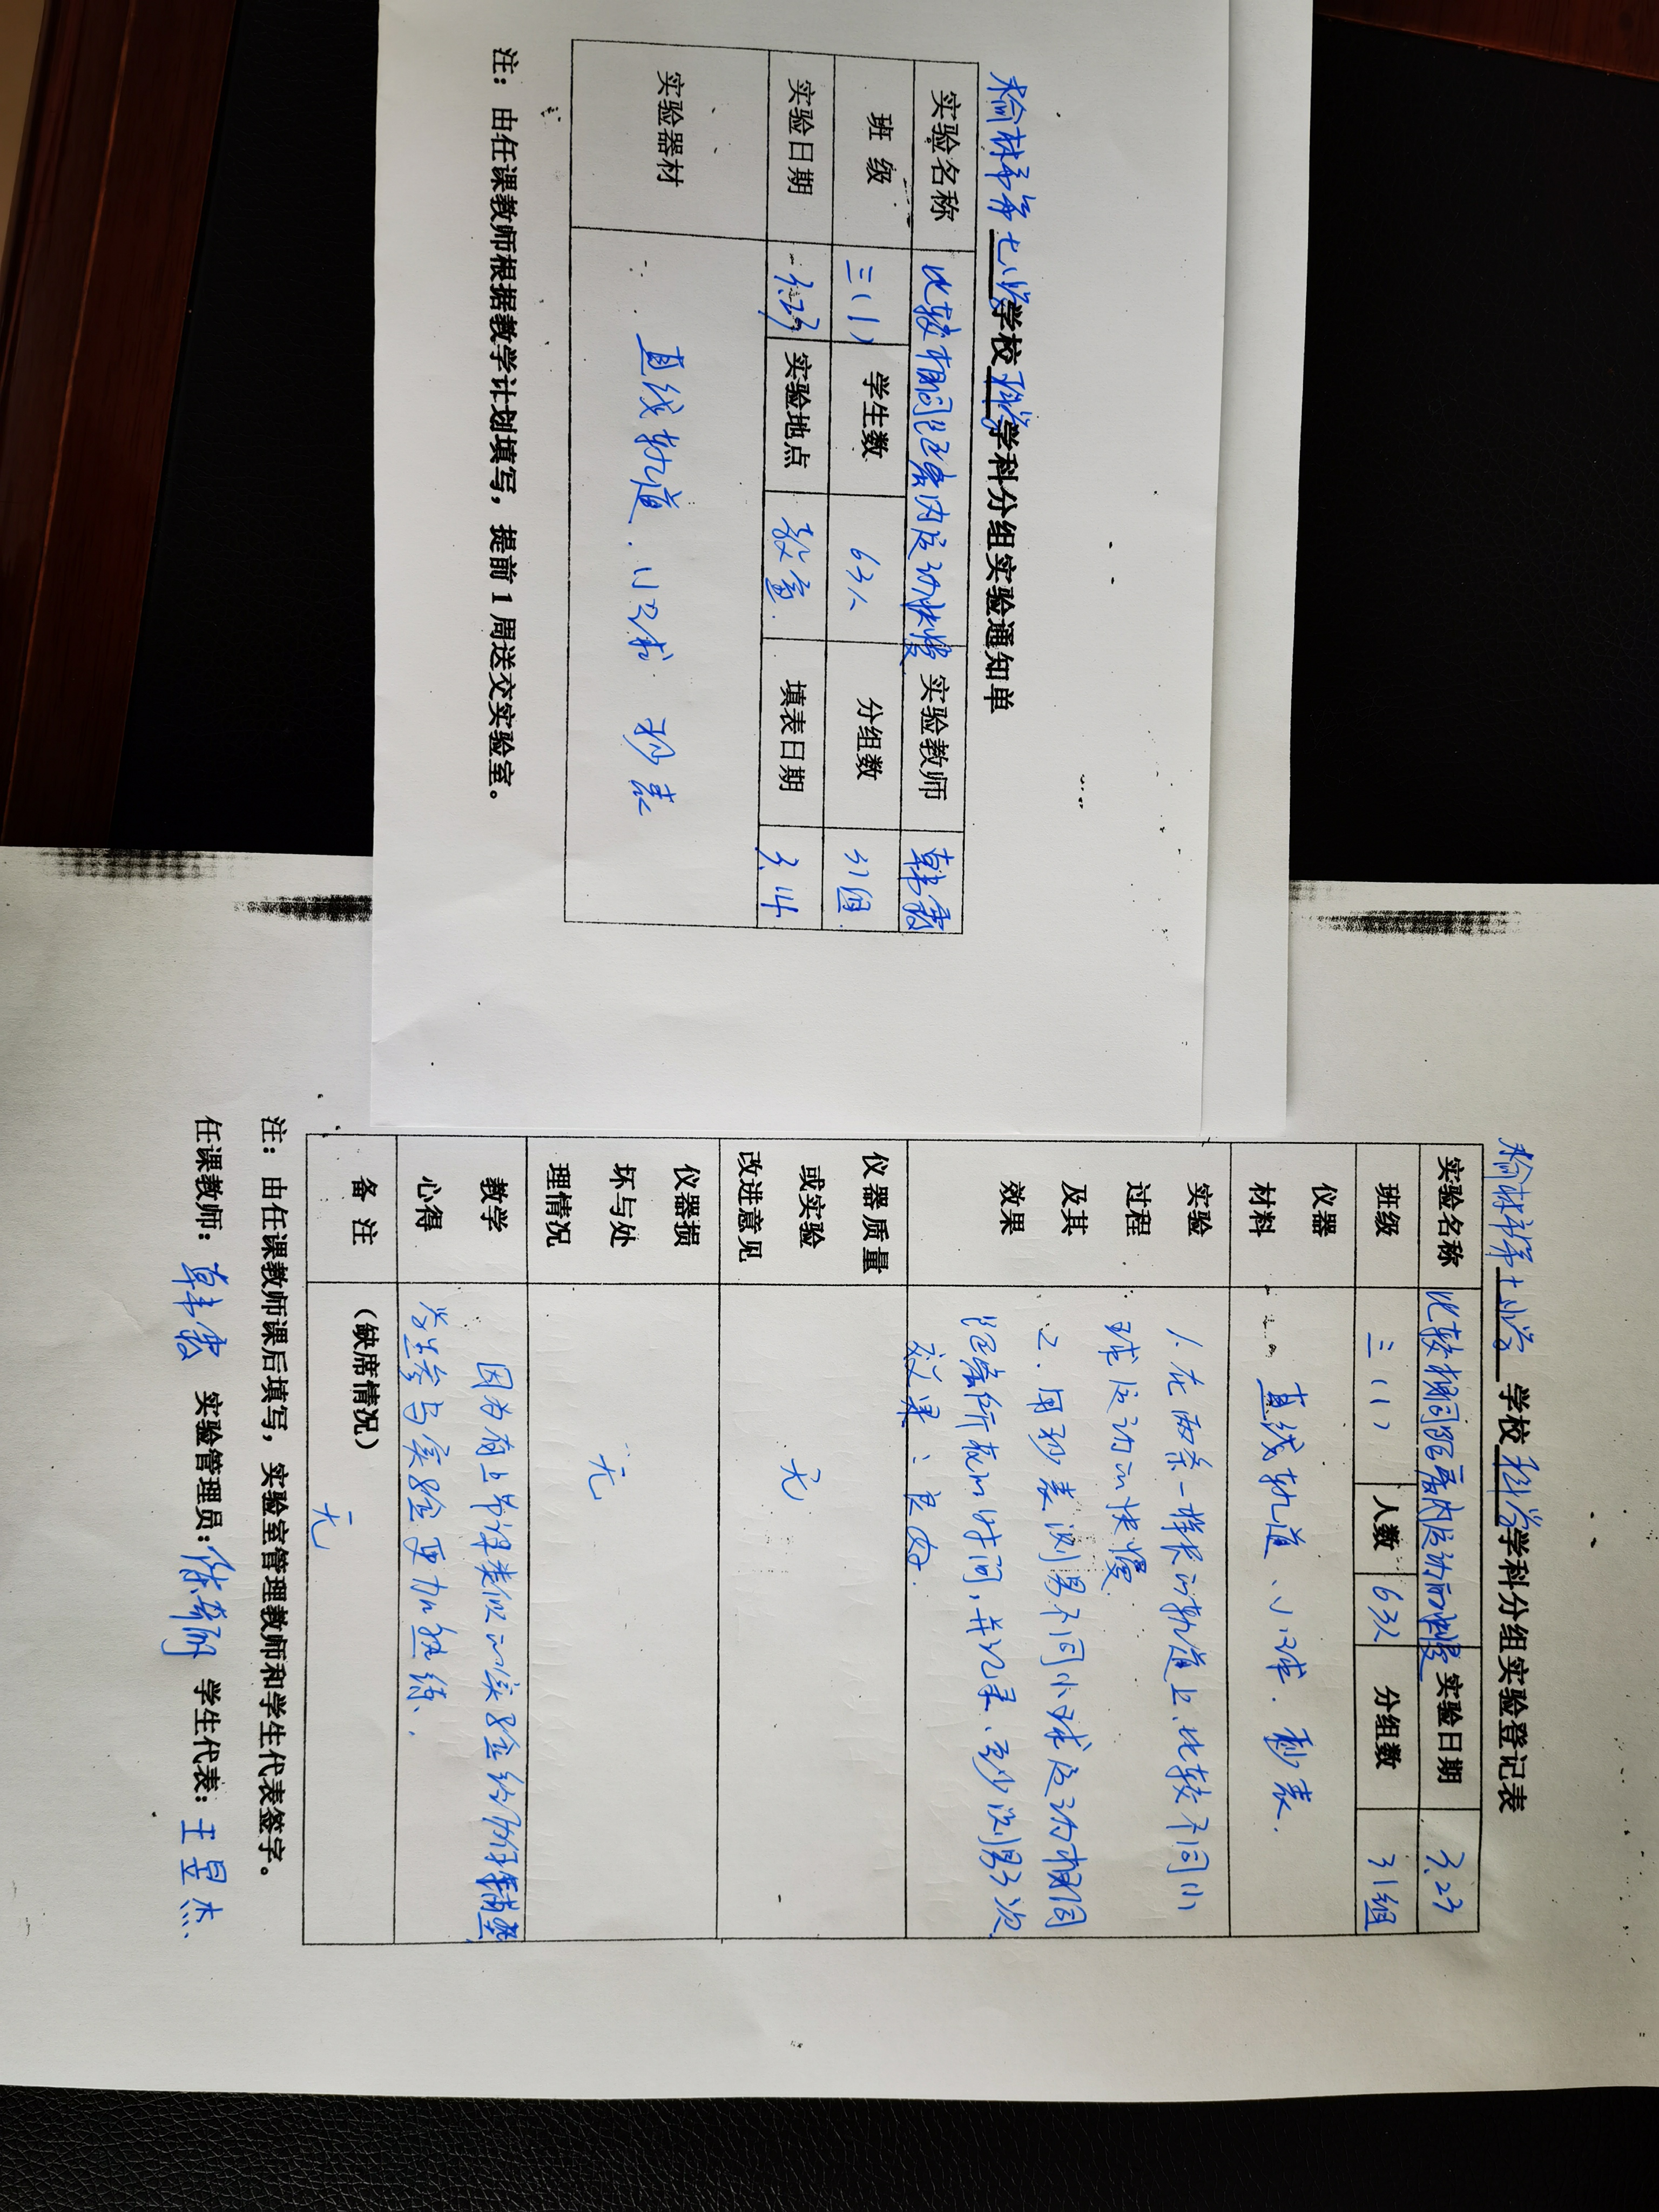 榆林市第七小学学校科学学科分组实验通知单
实验名称 比较相同距离内运动快慢 实验教师 韩霞
班 级 三(1) 学生数 63人 分组数 31组
实验日期 3.23 实验地点 教室. 填表日期 3.14
实验器材 直线轨道、小球 秒表
注：由任课教师根据教学计划填写，提前1周送交实验室。
榆林市第七小学 学校科学学科分组实验登记表
实验名称 比较相同距离内运动的快慢 实验日期 3.23
班级 三(1) 人数 63人 分组数 31组
仪器
材料
直线轨道、小球. 秒表.
实验
过程
及其
效果
1. 在两条一样长的轨道上，比较不同小
球运动的快慢
2. 用秒表测量不同小球运动相同
距离所花的时间，并记录、至少测量3次
效果：良好.
仪器质量
或实验
改进意见
无
仪器损
坏与处
理情况
无
教学
心得
因为有上节课类似的实验给
学生参与实验更加熟练.
备 注
（缺席情况）
无
注：由任课教师课后填写，实验室管理教师和学生代表签字。
任课教师：韩霞 实验管理员： 学生代表：王昱杰